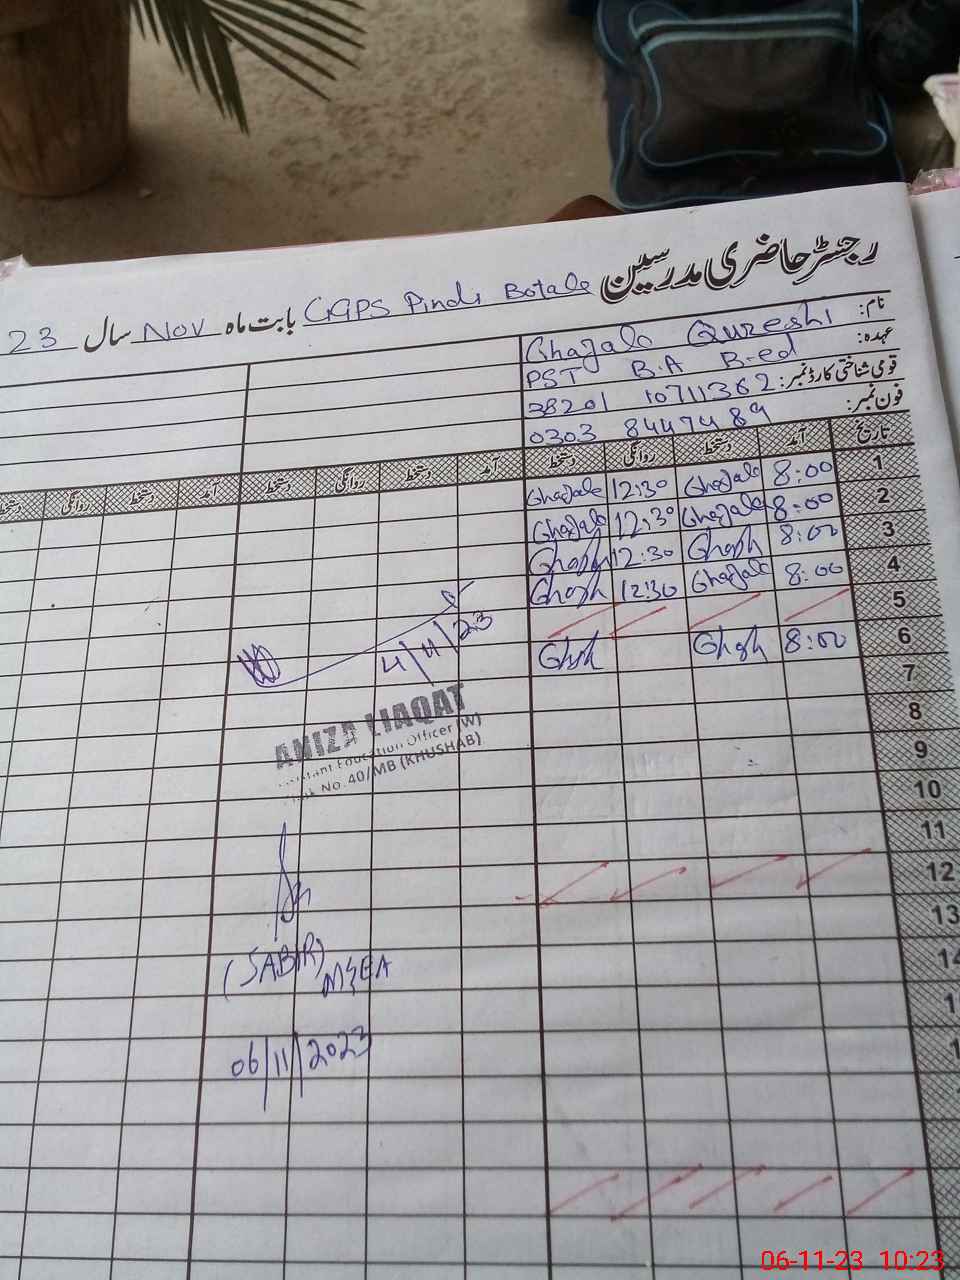 رجسٹر حاضری مدرسین GGPS Pindi Botala بابت ماہ Nov سال 23
نام: Ghazala Qureshi
عہدہ: PST B.A B-ed
قومی شناختی کارڈ نمبر: 38201 10711362
فون نمبر: 0303 8447489
تاریخ آمد دستخط روانگی دستخط آمد دستخط روانگی دستخط آمد دستخط روانگی دستخط
1 8:00 Ghazala 12:30 Ghazala
2 8:00 Ghazala 12:30 Ghazala
3 8:00 12:30
4 8:00 Ghazala 12:30
5
6 8:00
7
8
9
10
11
12
13
14
4/11/23
ANIZA LIAQAT
Assistant Education Officer (W)
No. 40/MB (KHUSHAB)
(SABIR)
MEA
06/11/2023
06-11-23 10:23